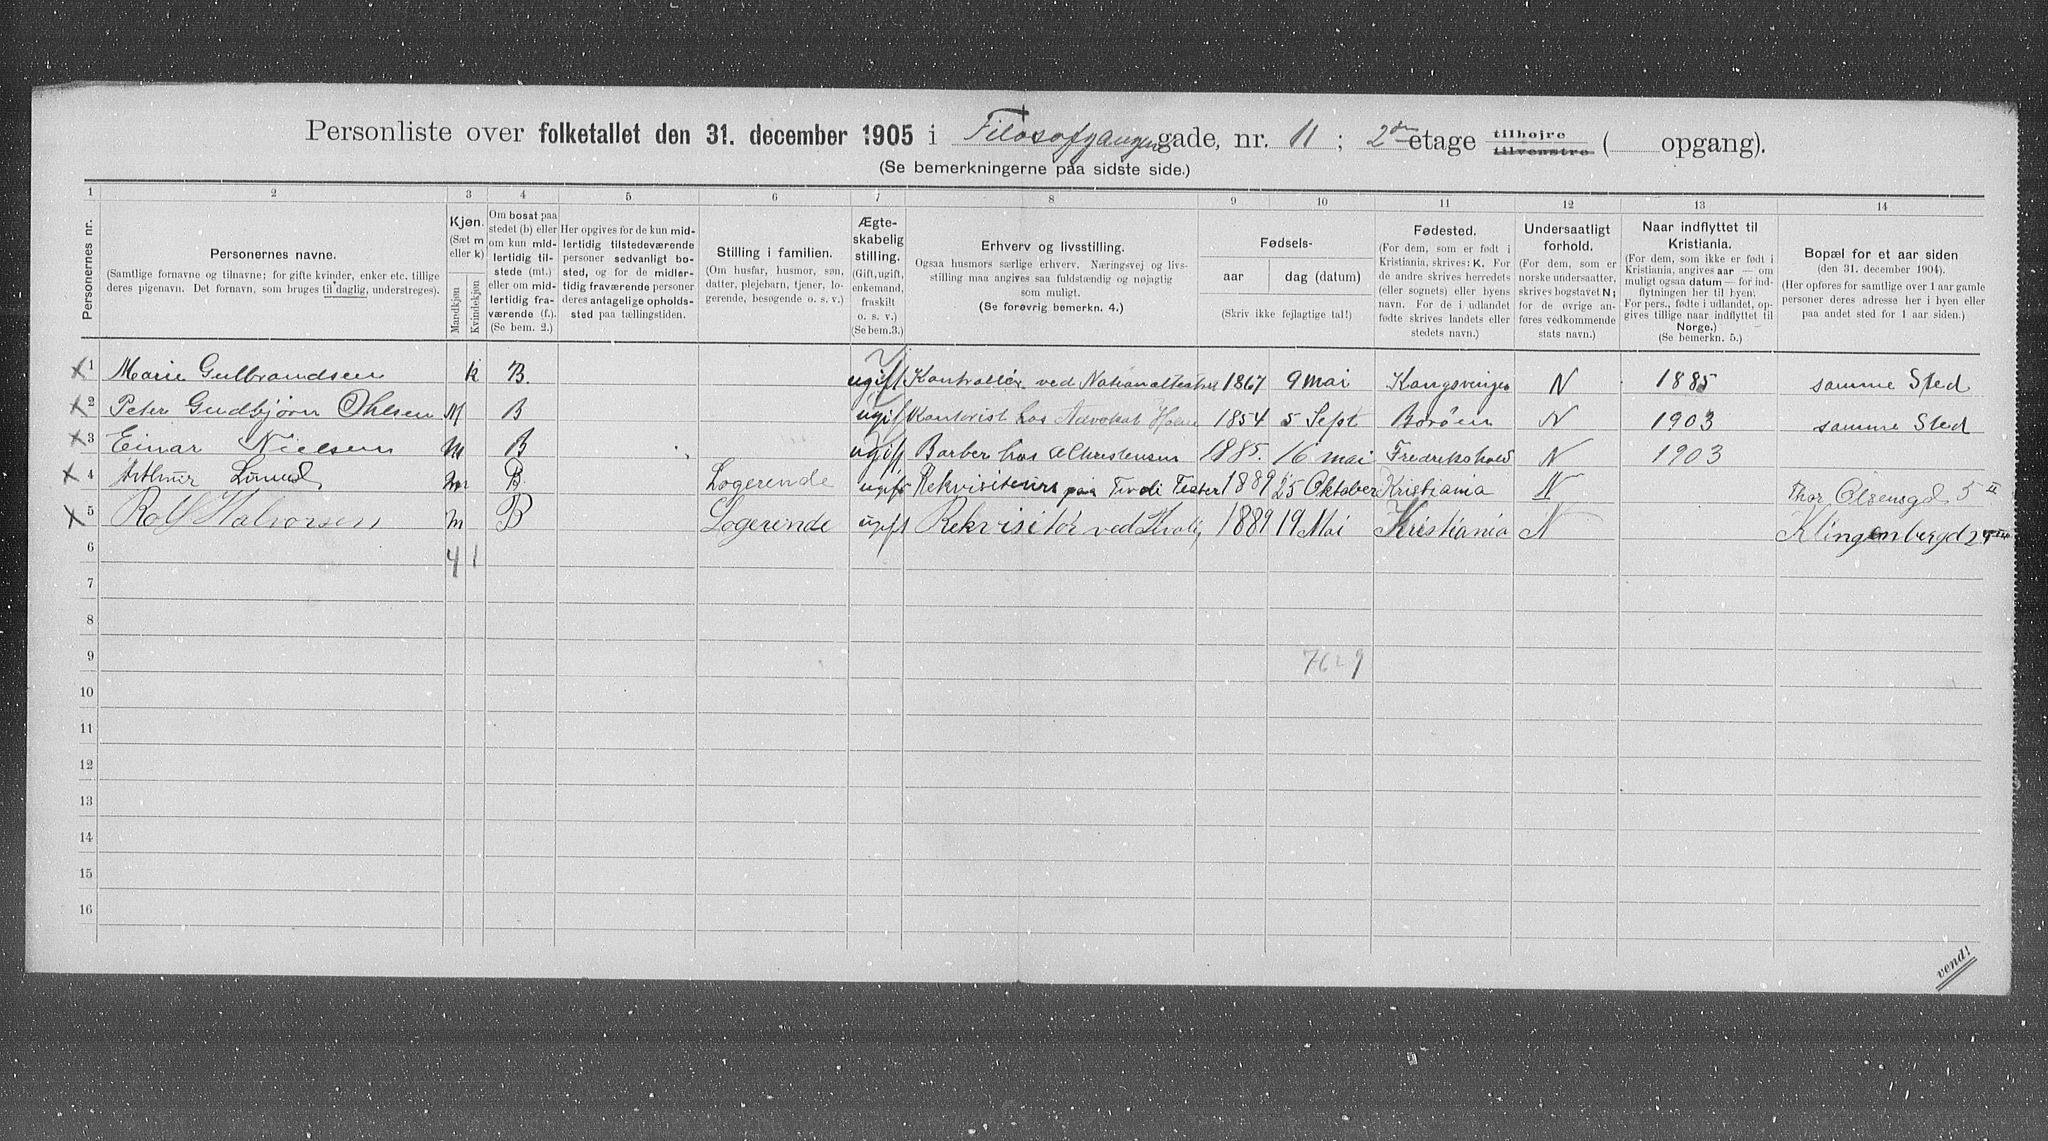 Personliste over folketallet den 31. december 1905 i Filosofgangen gade, nr. 11 ; 2den etage tilhøjre tilvenstre ( opgang).
(Se bemerkningerne paa sidste side.)
1 2 3 4 5 6 7 8 9 10 11 12 13 14
Personernes nr.
Personernes navne.
(Samtlige fornavne og tilnavne; for gifte kvinder, enker etc. tillige deres pigenavn. Det fornavn, som bruges til daglig, understreges).
Kjøn.
(Sæt m eller k)
Mandkjøn
Kvindekjøn
Om bosat paa stedet (b) eller om kun midlertidig tilstede (mt.) eller om midlertidig fraværende (f.).
(Se bem. 2.)
Her opgives for de kun midlertidig tilstedeværende personer sedvanligt bosted, og for de midlertidig fraværende personer deres antagelige opholdssted paa tællingstiden.
Stilling i familien.
(Om husfar, husmor, søn, datter, plejebarn, tjener, logerende, besøgende o. s. v.)
Ægteskabelig stilling.
(Gift, ugift, enkemand, fraskilt o. s. v.)
(Se bem.3.)
Erhverv og livsstilling.
Ogsaa husmors særlige erhverv. Næringsvej og livsstilling maa angives saa fuldstændig og nøjagtig som muligt.
(Se forøvrig bemerkn. 4.)
Fødsels-
aar
dag (datum)
(Skriv ikke fejlagtige tal!)
Fødested.
(For dem, som er født i Kristiania, skrives: K. For de andre skrives herredets (eller sognets) eller byens navn. For de i udlandet fødte skrives landets eller stedets navn.)
Undersaatligt forhold.
(For dem, som er norske undersaatter, skrives bogstavet N; for de øvrige anføres vedkommende stats navn.)
Naar indflyttet til Kristiania.
(For dem, som ikke er født i Kristiania, angives aar — om muligt ogsaa datum — for indflytningen her til byen. For pers., fødte i udlandet, opgives tillige naar indflyttet til Norge.)
(Se bemerkn. 5.)
Bopæl for et aar siden
(den 31. december 1904).
(Her opføres for samtlige over 1 aar gamle personer deres adresse her i byen eller paa andet sted for 1 aar siden.)
x 1 Marie Gulbrandsen k B. ugift Kontrollør ved Nationalteatret 1867 9 Mai Kongsvinger N 1885 samme Sted
x 2 Peter Gudbjørn Ohlsen M B ugift Kontorist hos Advokat 1854 5 Sept N 1903 samme Sted
x 3 Einar Nielsen M B ugift Barber hos Christensen 1885. 16 mai Fredrikshald N 1903
x 4 Arthur Lunud m B Logerende ugift Rekvisiteurs paa Tivoli Teater 1889 25 Oktober Kristiania N Thor Olsensgd 5 II
x 5 Rolf Halvorsen m B Logerende ugift Rekvisitør ved Tivoli, 1889 19 Mai Kristiania N Klingenbergd
6 4 1
7
8
9 7629
10
11
12
13
14
15
16
vend!